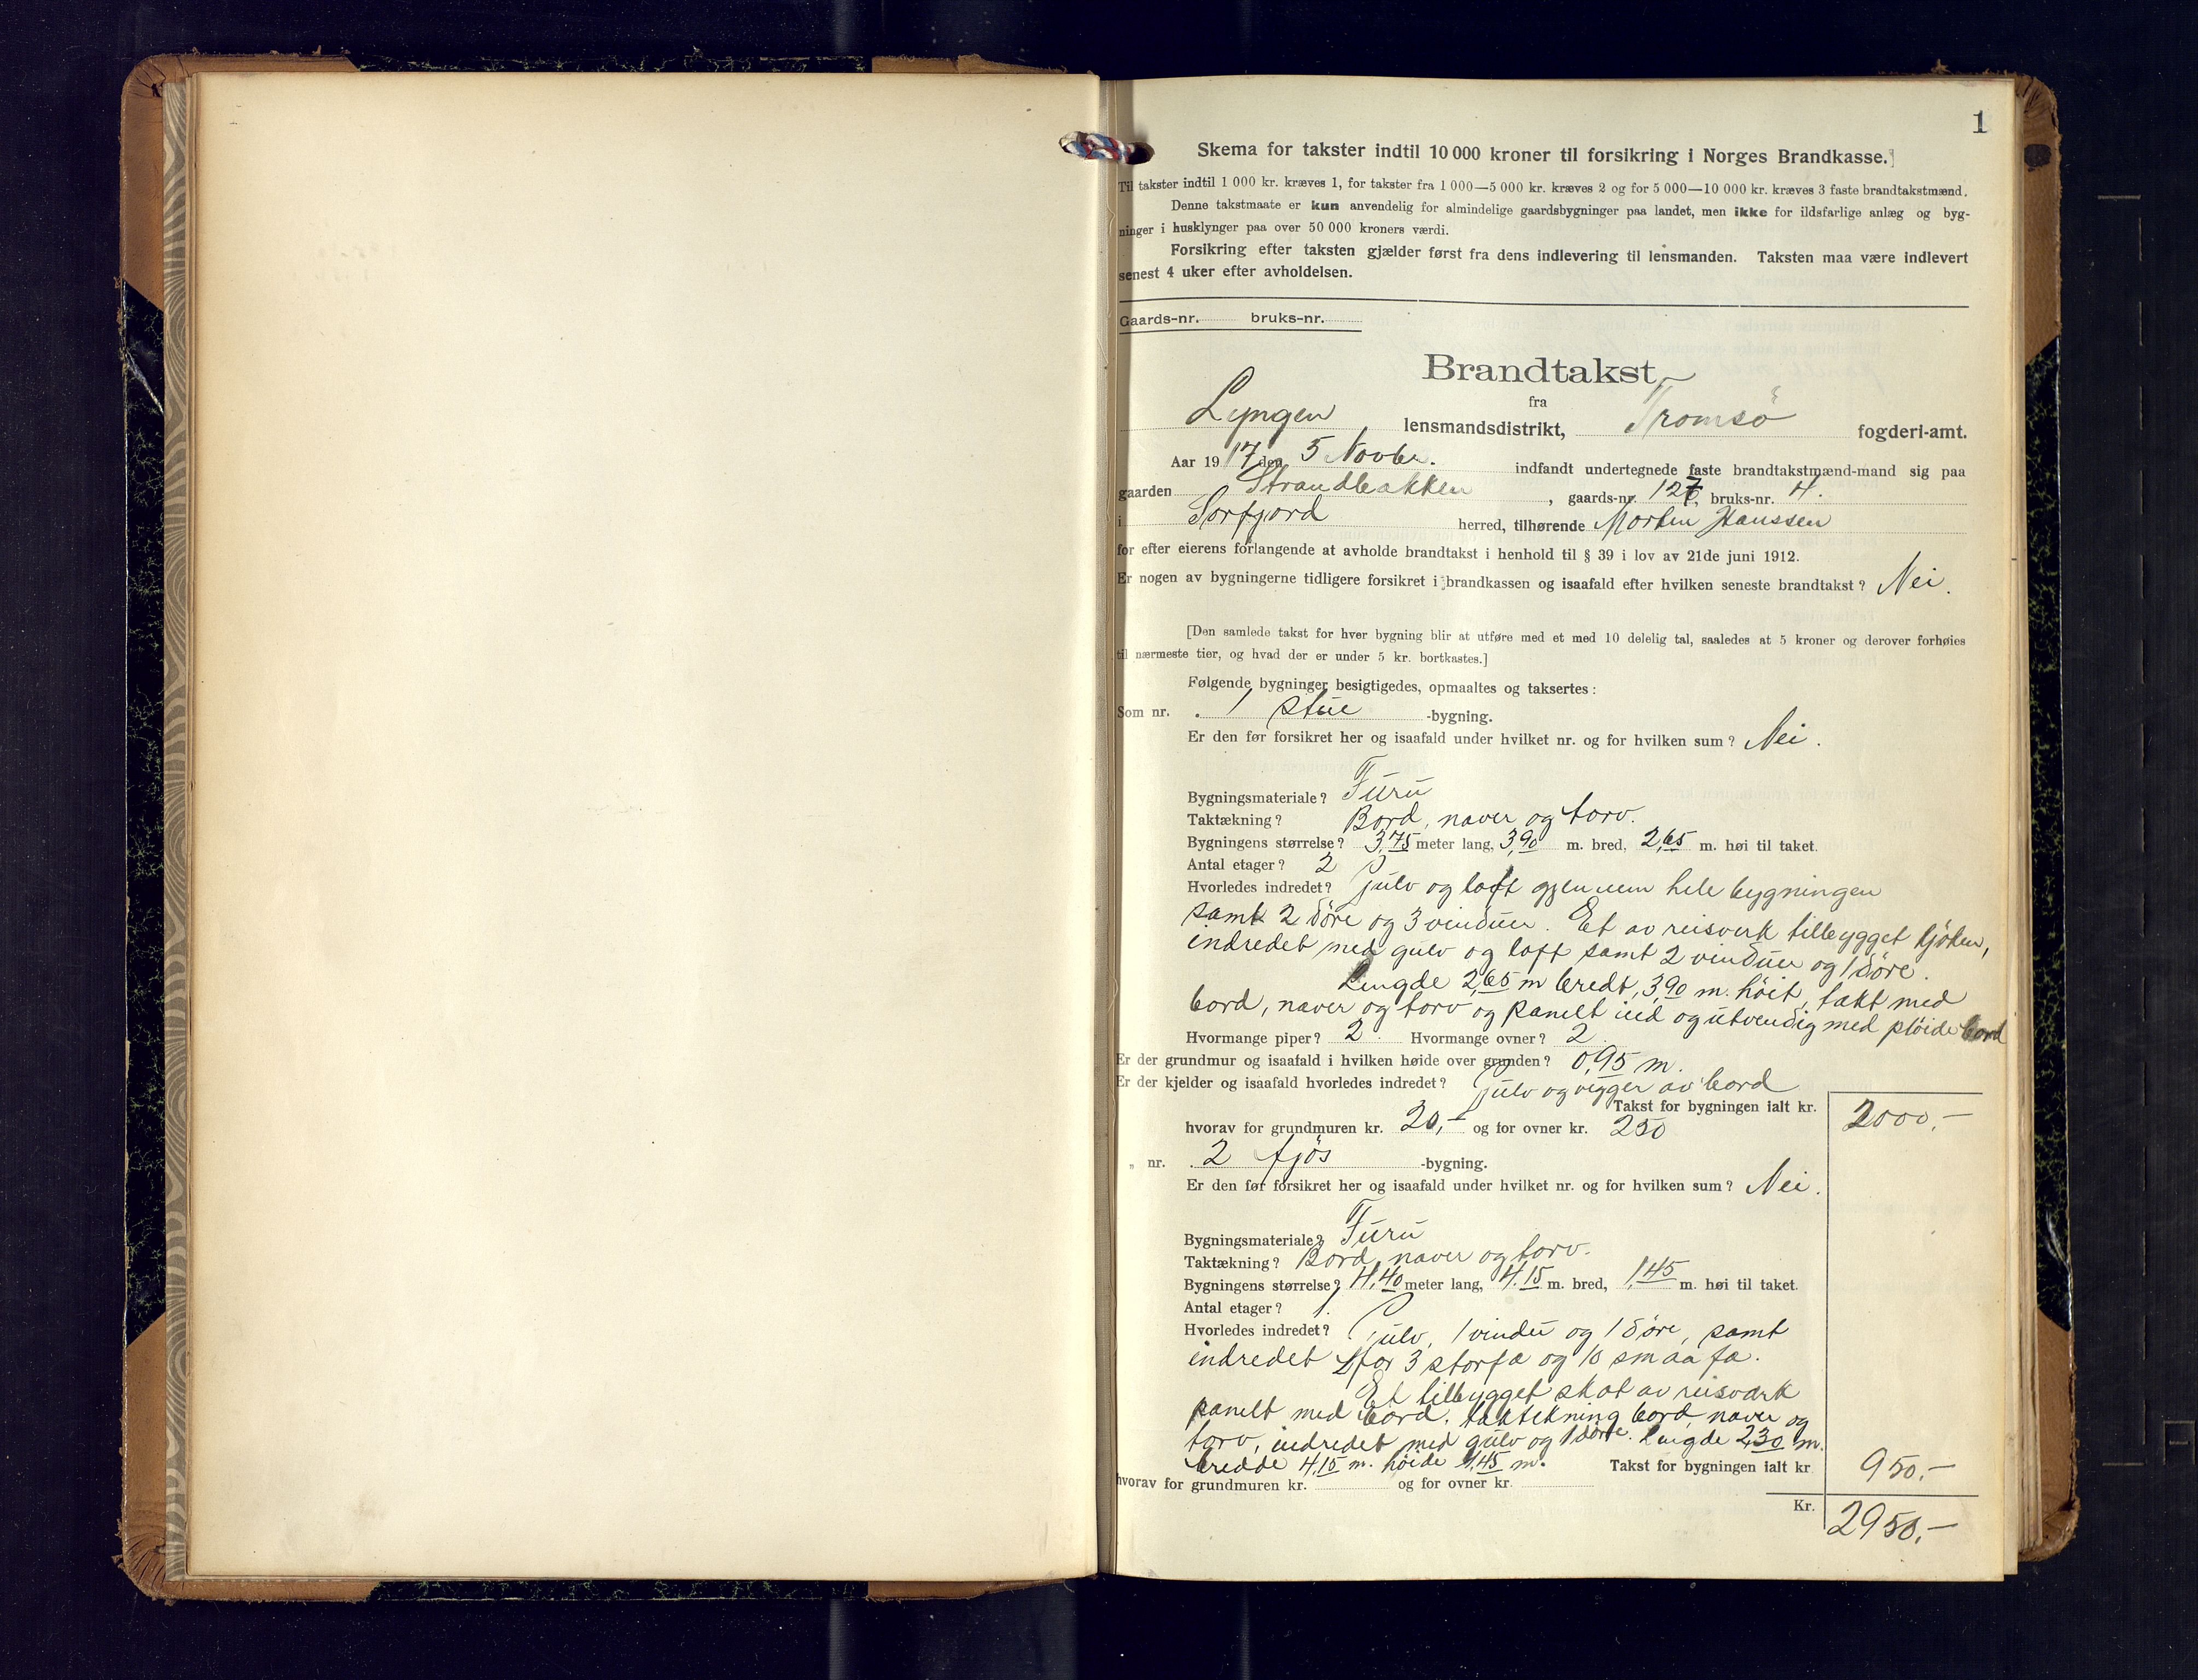 1
Skema for takster indtil 10 000 kroner til forsikring i Norges Brandkasse.
Til takster indtil 1 000 kr. kræves 1, for takster fra 1 000—5 000 kr. kræves 2 og for 5 000—10 000 kr. kræves 3 faste brandtakstmænd.
Denne takstmaate er kun anvendelig for almindelige gaardsbygninger paa landet, men ikke for ildsfarlige anlæg og byg-
ninger i husklynger paa over 50 000 kroners værdi.
Forsikring efter taksten gjælder først fra dens indlevering til lensmanden. Taksten maa være indlevert
senest 4 uker efter avholdelsen.
Gaards-nr. bruks-nr.
Brandtakst
fra
Lyngen lensmandsdistrikt, Tromsö fogderi-amt.
Aar 1917 den 5 Novbr. indfandt undertegnede faste brandtakstmænd-mand sig paa
gaarden Strandbakken, gaards-nr. 127, bruks-nr. 4.
i Sorfjord herred, tilhørende Morten Hanssen
for efter eierens forlangende at avholde brandtakst i henhold til § 39 i lov av 21de juni 1912.
Er nogen av bygningerne tidligere forsikret i brandkassen og isaafald efter hvilken seneste brandtakst? Nei.
[Den samlede takst for hver bygning blir at utføre med et med 10 delelig tal, saaledes at 5 kroner og derover forhøies
til nærmeste tier, og hvad der er under 5 kr. bortkastes.]
Følgende bygninger besigtigedes, opmaaltes og taksertes:
Som nr. 1 stue -bygning.
Er den før forsikret her og isaafald under hvilket nr. og for hvilken sum? Nei.
Bygningsmateriale? Furu
Taktækning? Bord, naver og torv.
Bygningens størrelse? 3,75 meter lang, 3,90 m. bred, 2,65 m. høi til taket.
Antal etager? 2
Hvorledes indredet? Gulv og loft gjennem hele bygningen
samt 2 döre og 3 vinduer. Et av reisverk tilbygget kjöken,
indredet med gulv og loft samt 2 vinduer og 1 döre.
Lengde 2,65 m bredt, 3,90 m. höit, takt med
bord, naver og torv og panelt ind og utvendig med plöide bord
Hvormange piper? 2. Hvormange ovner? 2.
Er der grundmur og isaafald i hvilken høide over grunden? 0,95 m.
Er der kjelder og isaafald hvorledes indredet? Gulv og vegger av bord
Takst for bygningen ialt kr. 2000,-
hvorav for grundmuren kr. 20,- og for ovner kr. 250
„ nr. 2 fjös -bygning.
Er den før forsikret her og isaafald under hvilket nr. og for hvilken sum? Nei.
Bygningsmateriale? Furu
Taktækning? Bord, naver og torv.
Bygningens størrelse? 4,40 meter lang, 4.15 m. bred, 1,45 m. høi til taket.
Antal etager? 1.
Hvorledes indredet? Gulv, 1 vindu og 1 döre, samt
indredet for 3 storfæ og 10 smaa fæ.
Et tilbygget skot av reisværk
panelt med bord. taktekning bord, naver og
torv, indredet med gulv og 1 döre. Lengde 2,30 m.
bredde 4,15 m. höide 1,45 m. Takst for bygningen ialt kr 950.-
hvorav for grundmuren kr. og for ovner kr.
Kr. 2950,-